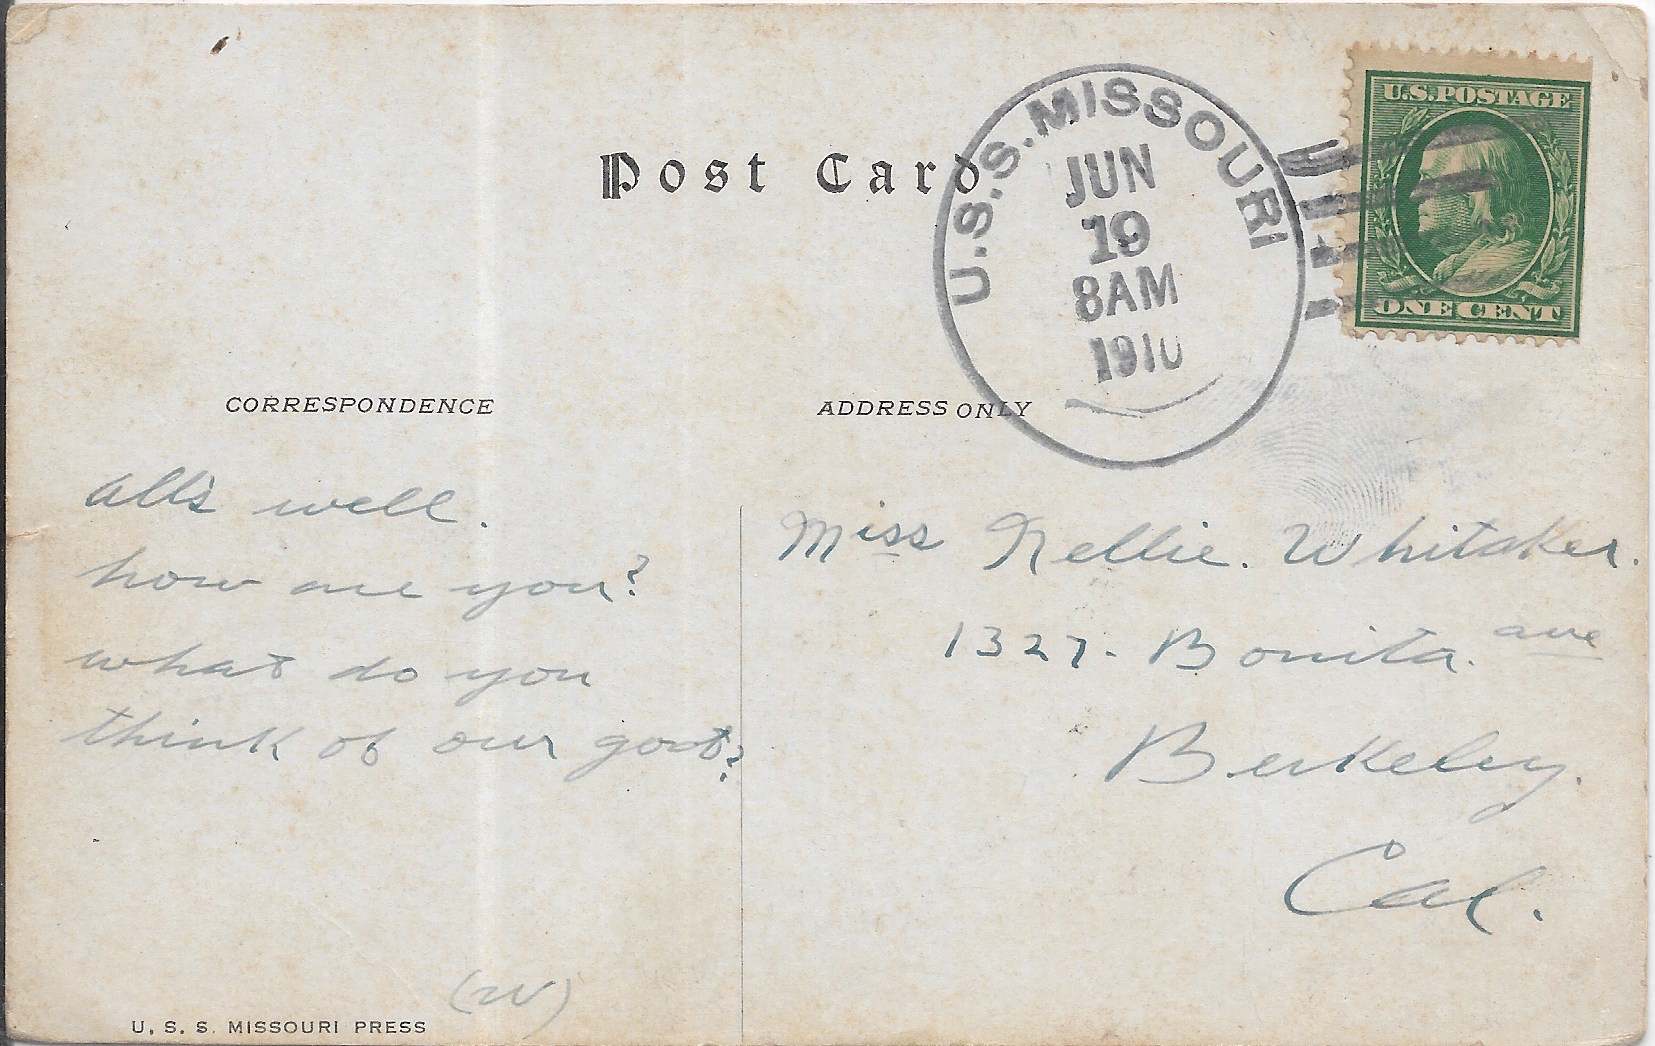 Post Card
U.S.S. MISSOURI
JUN
19
8AM
1910
U.S. POSTAGE
ONE CENT
CORRESPONDENCE
ADDRESS ONLY
all's well.
how are you?
what do you
think of our goat?
Miss Nellie. Whitaker.
1327- Bonita. ave
Berkeley.
Cal.
(W)
U. S. S. MISSOURI PRESS